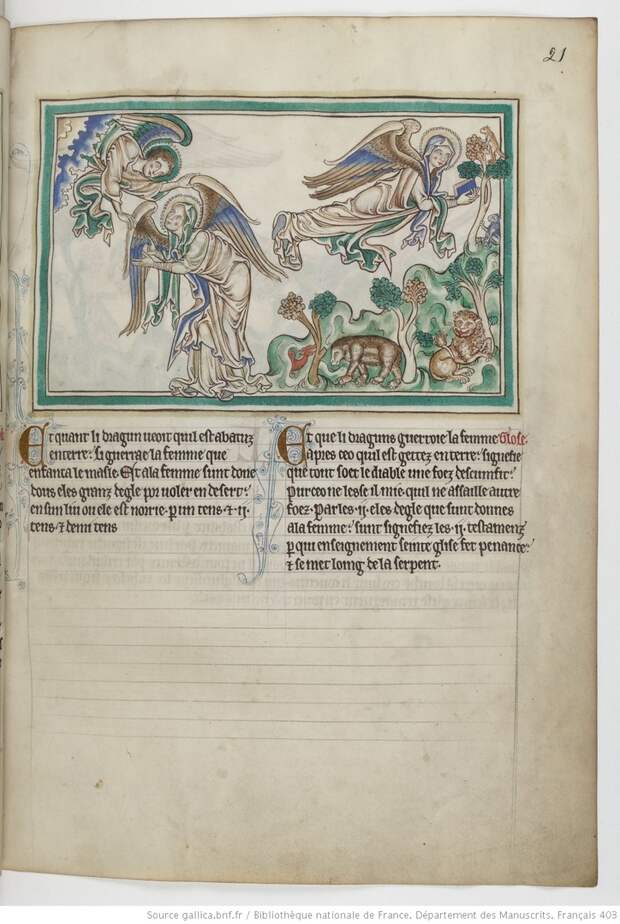 21
Et quant li dragun ueoit quil est abatuz
en terre: si guerrae la femme que
enfanta le masle. Et a la femme sunt done
dous eles granz degle por uoler en desert:
en sun liu ou ele est norrie. p un tens ⁊ .ii.
tens. ⁊ demi tens
Et que li draguns guerroie la femme Glose.
apres ceo quil est gettez en terre: signefie
que tout soet le diable une foez descumfit:
pur ceo ne lesse il mie quil ne assaille autre
foez. Par les .ii. eles degle que sunt donnes
a la femme: sunt signefiez les .ii. testamenz
p qui enseignement seinte glise fet penance:
⁊ se met loing de la serpent.
Source gallica.bnf.fr / Bibliothèque nationale de France. Département des Manuscrits. Français 403